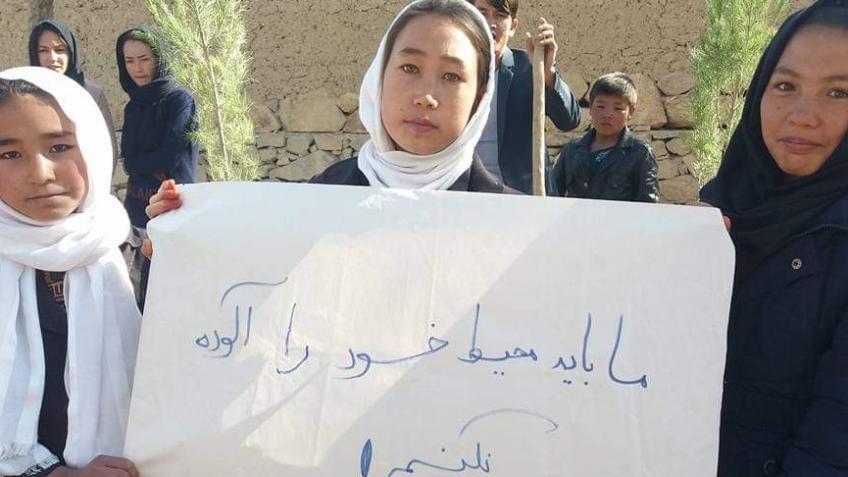 ما باید محیط خود را آلوده
نکنیم!